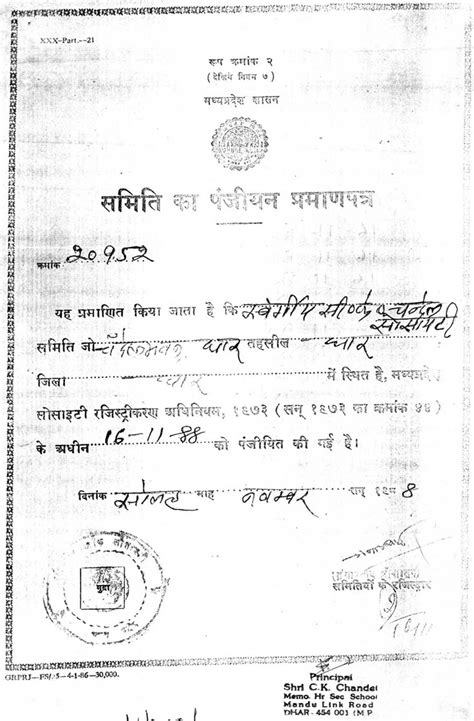 XXX-Part.--21
रूप क्रमांक २
(देखिये नियम ७)
मध्यप्रदेश शासन
समिति का पंजीयन प्रमाणपत्र
क्रमांक 20952
यह प्रमाणित किया जाता है कि स्वर्गीय सी०के० चन्देल
सोसायटी
समिति जो धार तहसील धार
जिला धार में स्थित है, मध्यप्रदेश
सोसाइटी रजिस्ट्रीकरण अधिनियम, १९७३ (सन् १९७३ का क्रमांक ४४)
के अधीन 16-11-88 को पंजीयित की गई है।
दिनांक सोलह माह नवम्बर सन् १९ 8
मुद्रा
समितियों के रजिस्ट्रार
16/11
GRPRJ—FS/ 5—4-1-86—30,000.
Principal
Shri C.K. Chandel
Memo. Hr Sec School
Mandu Link Road
DHAR- 454 001 (M P